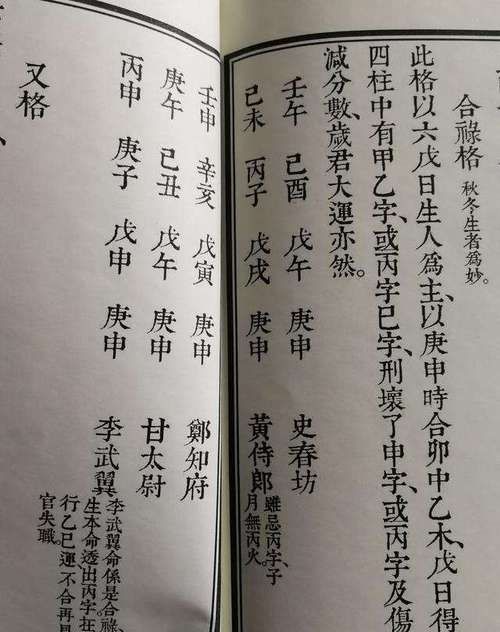 合祿格 秋冬生者爲妙。
此格以六戊日生人爲主、以庚申時合卯中乙木、戊日得
四柱中有甲乙字、或丙字巳字、刑壞了申字、或丙字及傷
減分數、歲君大運亦然。
壬午 己酉 戊午 庚申 史春坊
己未 丙子 戊戌 庚申 黃侍郎 雖忌丙字、子
月無丙火。
壬申 辛亥 戊寅 庚申 鄭知府
庚午 己丑 戊午 庚申 甘太尉
丙申 庚子 戊申 庚申 李武翼 李武翼命係是合祿、
生本命透出丙字、在
行乙巳運、不合再見
官失職。
又格